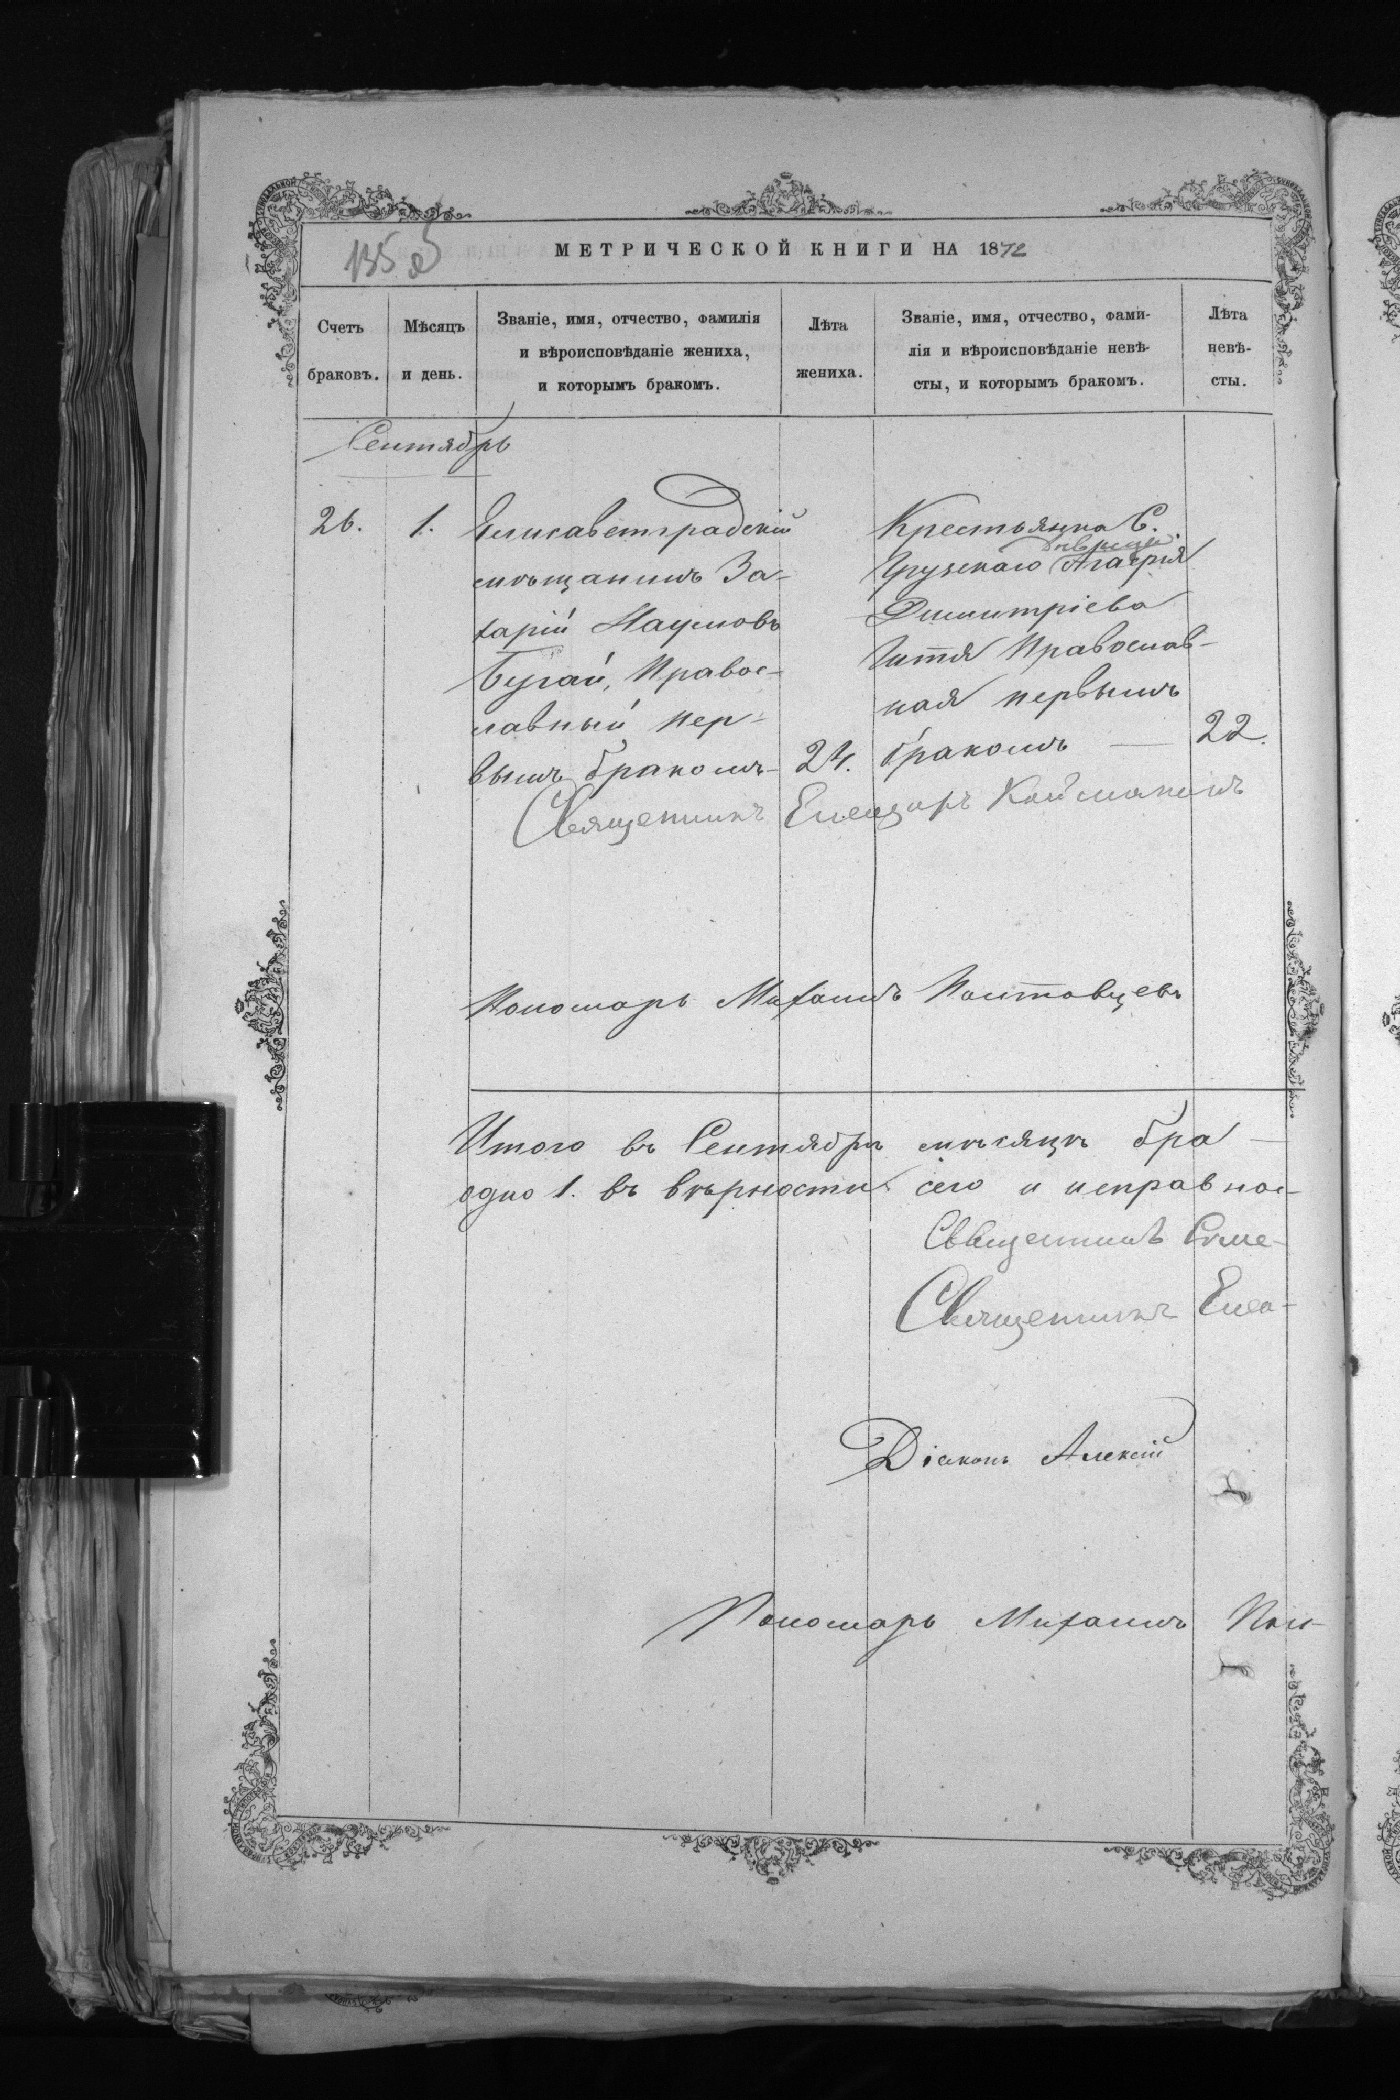 135 об
МЕТРИЧЕСКОЙ КНИГИ НА 1872
Счетъ
браковъ.
Мѣсяцъ
и день.
Званіе, имя, отчество, фамилія
и вѣроисповѣданіе жениха,
и которымъ бракомъ.
Лѣта
жениха.
Званіе, имя, отчество, фами-
лія и вѣроисповѣданіе невѣ-
сты, и которымъ бракомъ.
Лѣта
невѣ-
сты.
Сентябрь
26. 1.
Елисаветградскій
мѣщанинъ За-
харій Наумовъ
Бугай, Правос-
лавный пер-
вымъ бракомъ
24.
Крестьянка С.
дѣвица
Грузскаго Агафія
Димитріева
Православ-
ная первымъ
бракомъ
22.
Священникъ Елеазаръ
Пономарь Михаилъ Полтовцевъ
Итого въ Сентябрѣ мѣсяцѣ бра-
одно 1. въ вѣрности сего и исправнос-
Священникъ Симе-
Священникъ Елеа-
Діаконъ Алексій
Пономарь Михаилъ Пол-